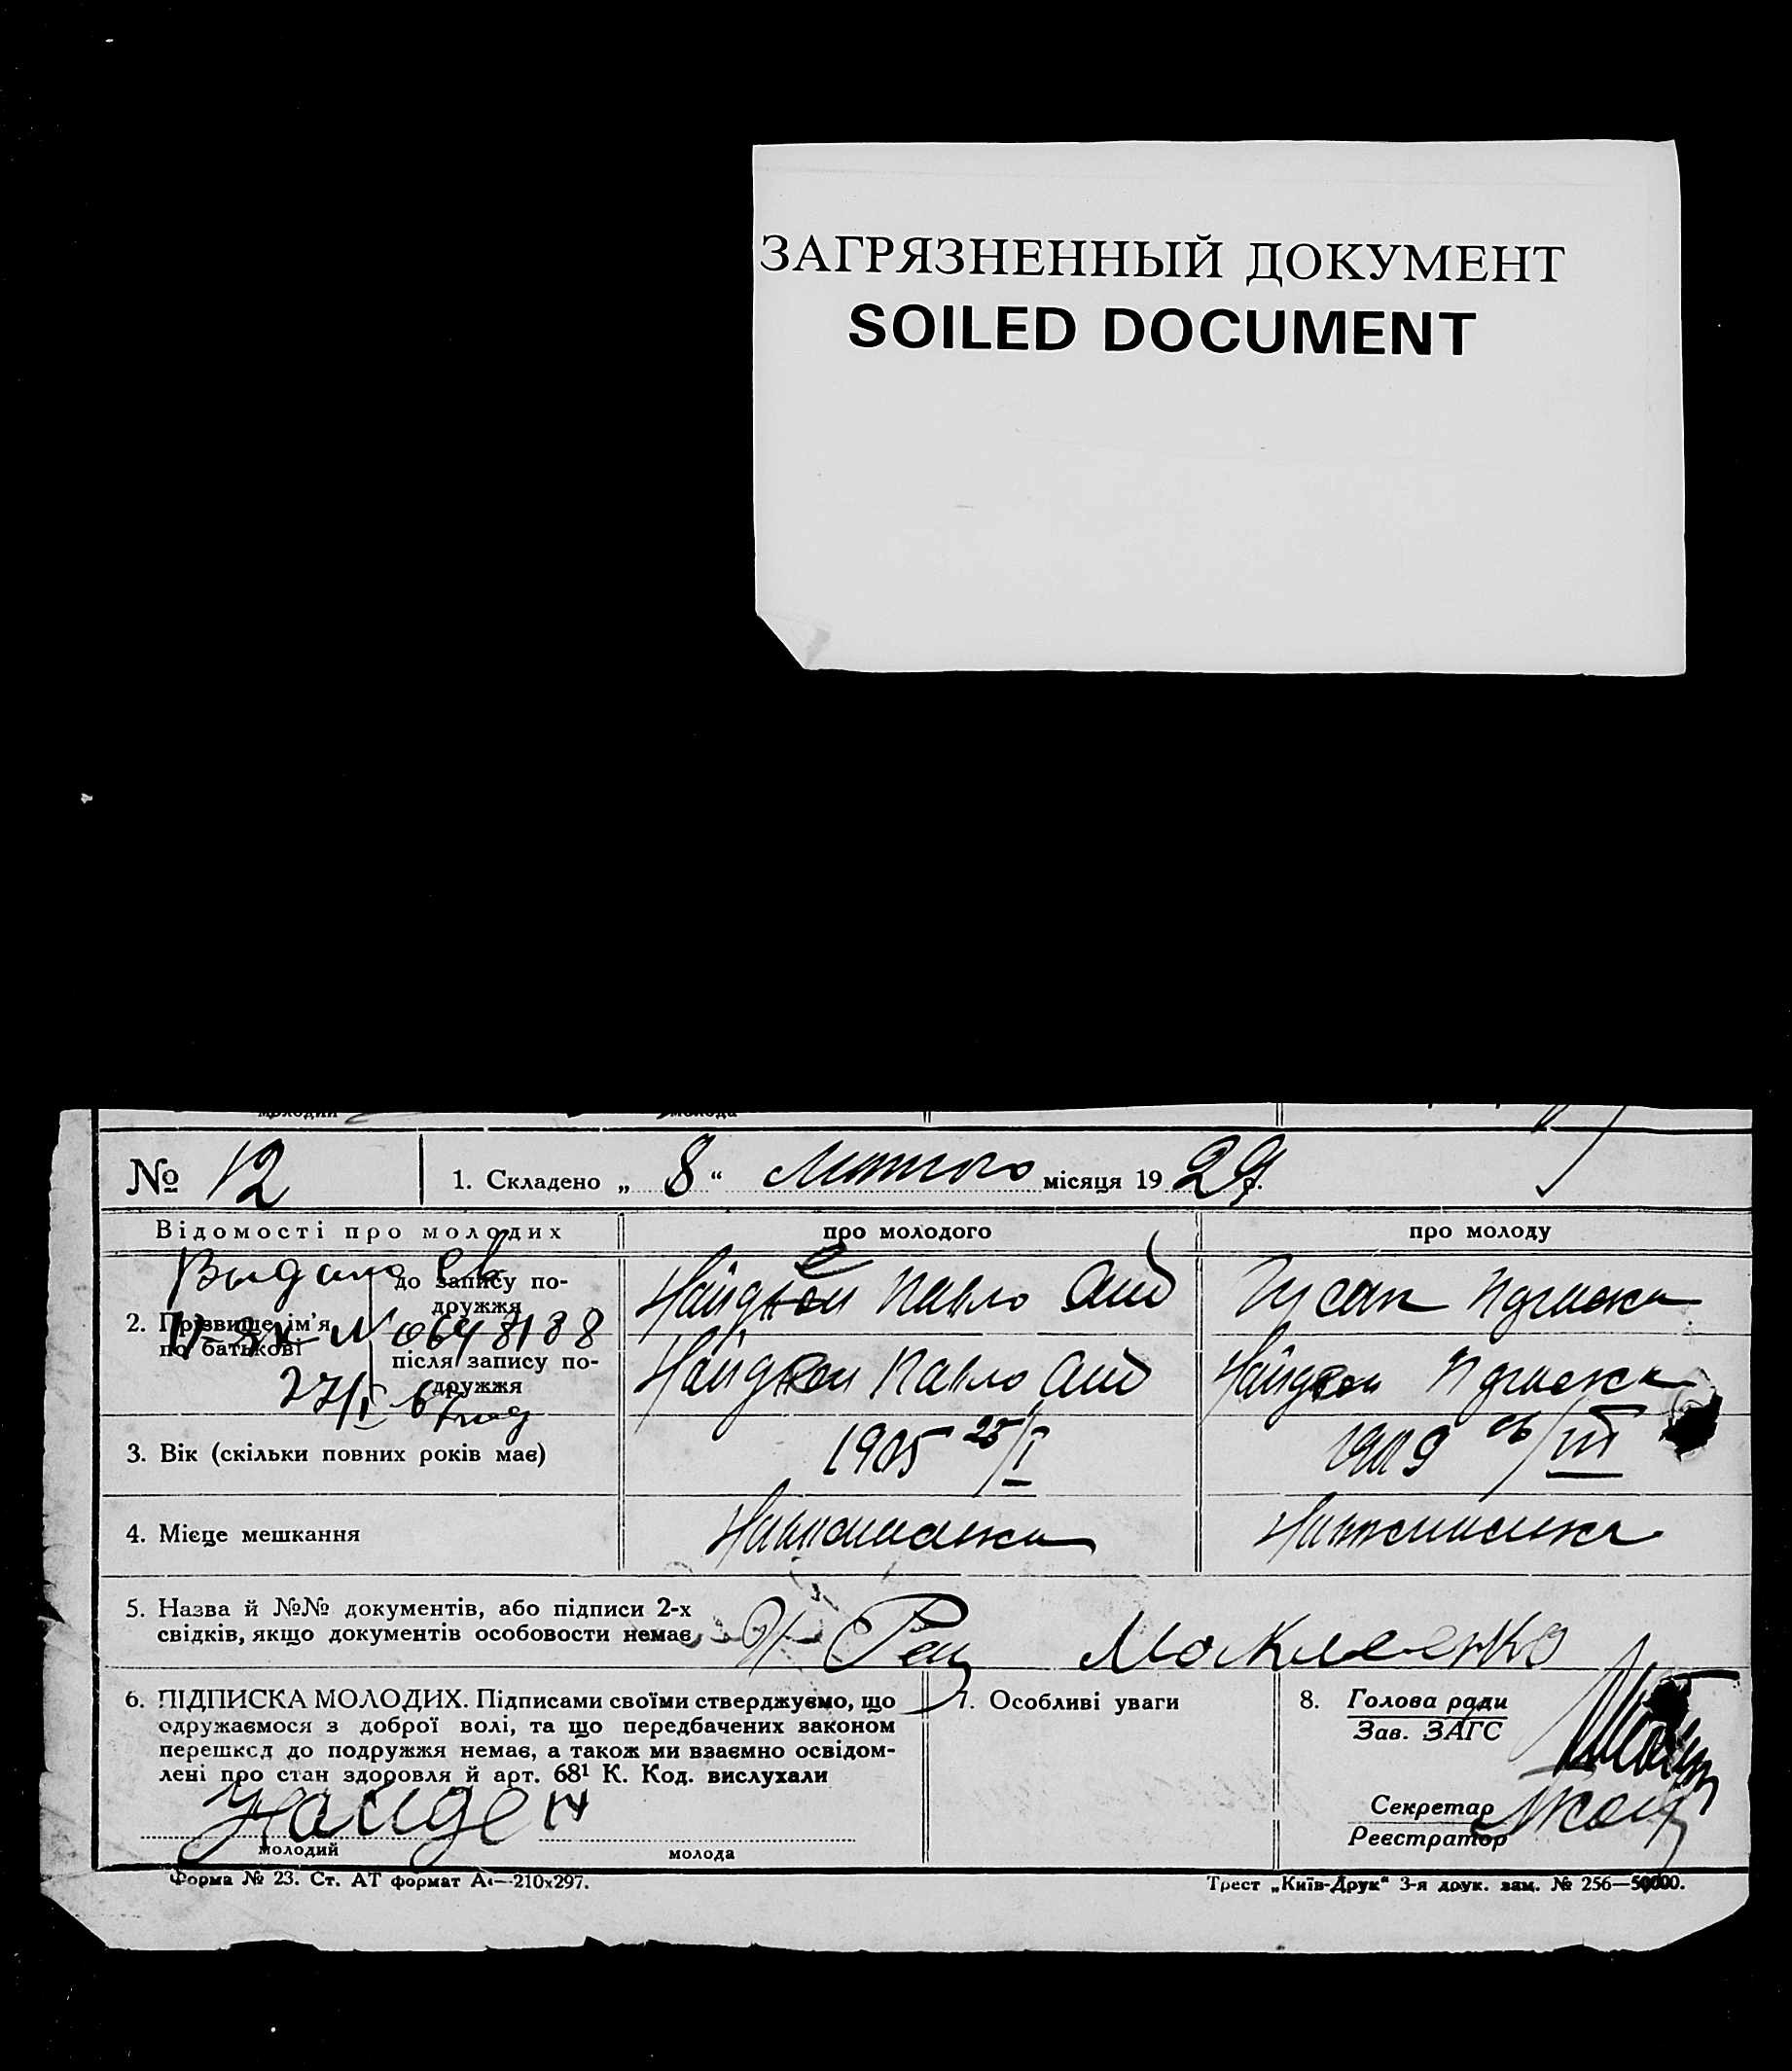 ЗАГРЯЗНЕННЫЙ ДОКУМЕНТ
SOILED DOCUMENT
молодий
молода
№ 12
1. Складено „ 8 “ Лютого місяця 1929 р.
Відомості про молодих
про молодого
про молоду
2. Прізвище ім'я по батькові
до запису по-
дружжя
після запису по-
дружжя
Выдано св
№ 064 8138
Павло Анд
Гусак
Павло Анд
3. Вік (скільки повних років має)
1905 25/I
1909 /III
4. Місце мешкання
5. Назва й №№ документів, або підписи 2-х
свідків, якщо документів особовости немає
6. ПІДПИСКА МОЛОДИХ. Підписами своїми стверджуємо, що
одружаємося з доброї волі, та що передбачених законом
перешкод до подружжя немає, а також ми взаємно освідом-
лені про стан здоровля й арт. 68¹ К. Код. вислухали
Найден
молодий
молода
7. Особливі уваги
8. Голова ради
Зав. ЗАГС
Секретар
Реєстратор
Форма № 23. Ст. АТ формат А₄—210х297.
Трест „Київ-Друк“ 3-я друк. зам. № 256—50000.